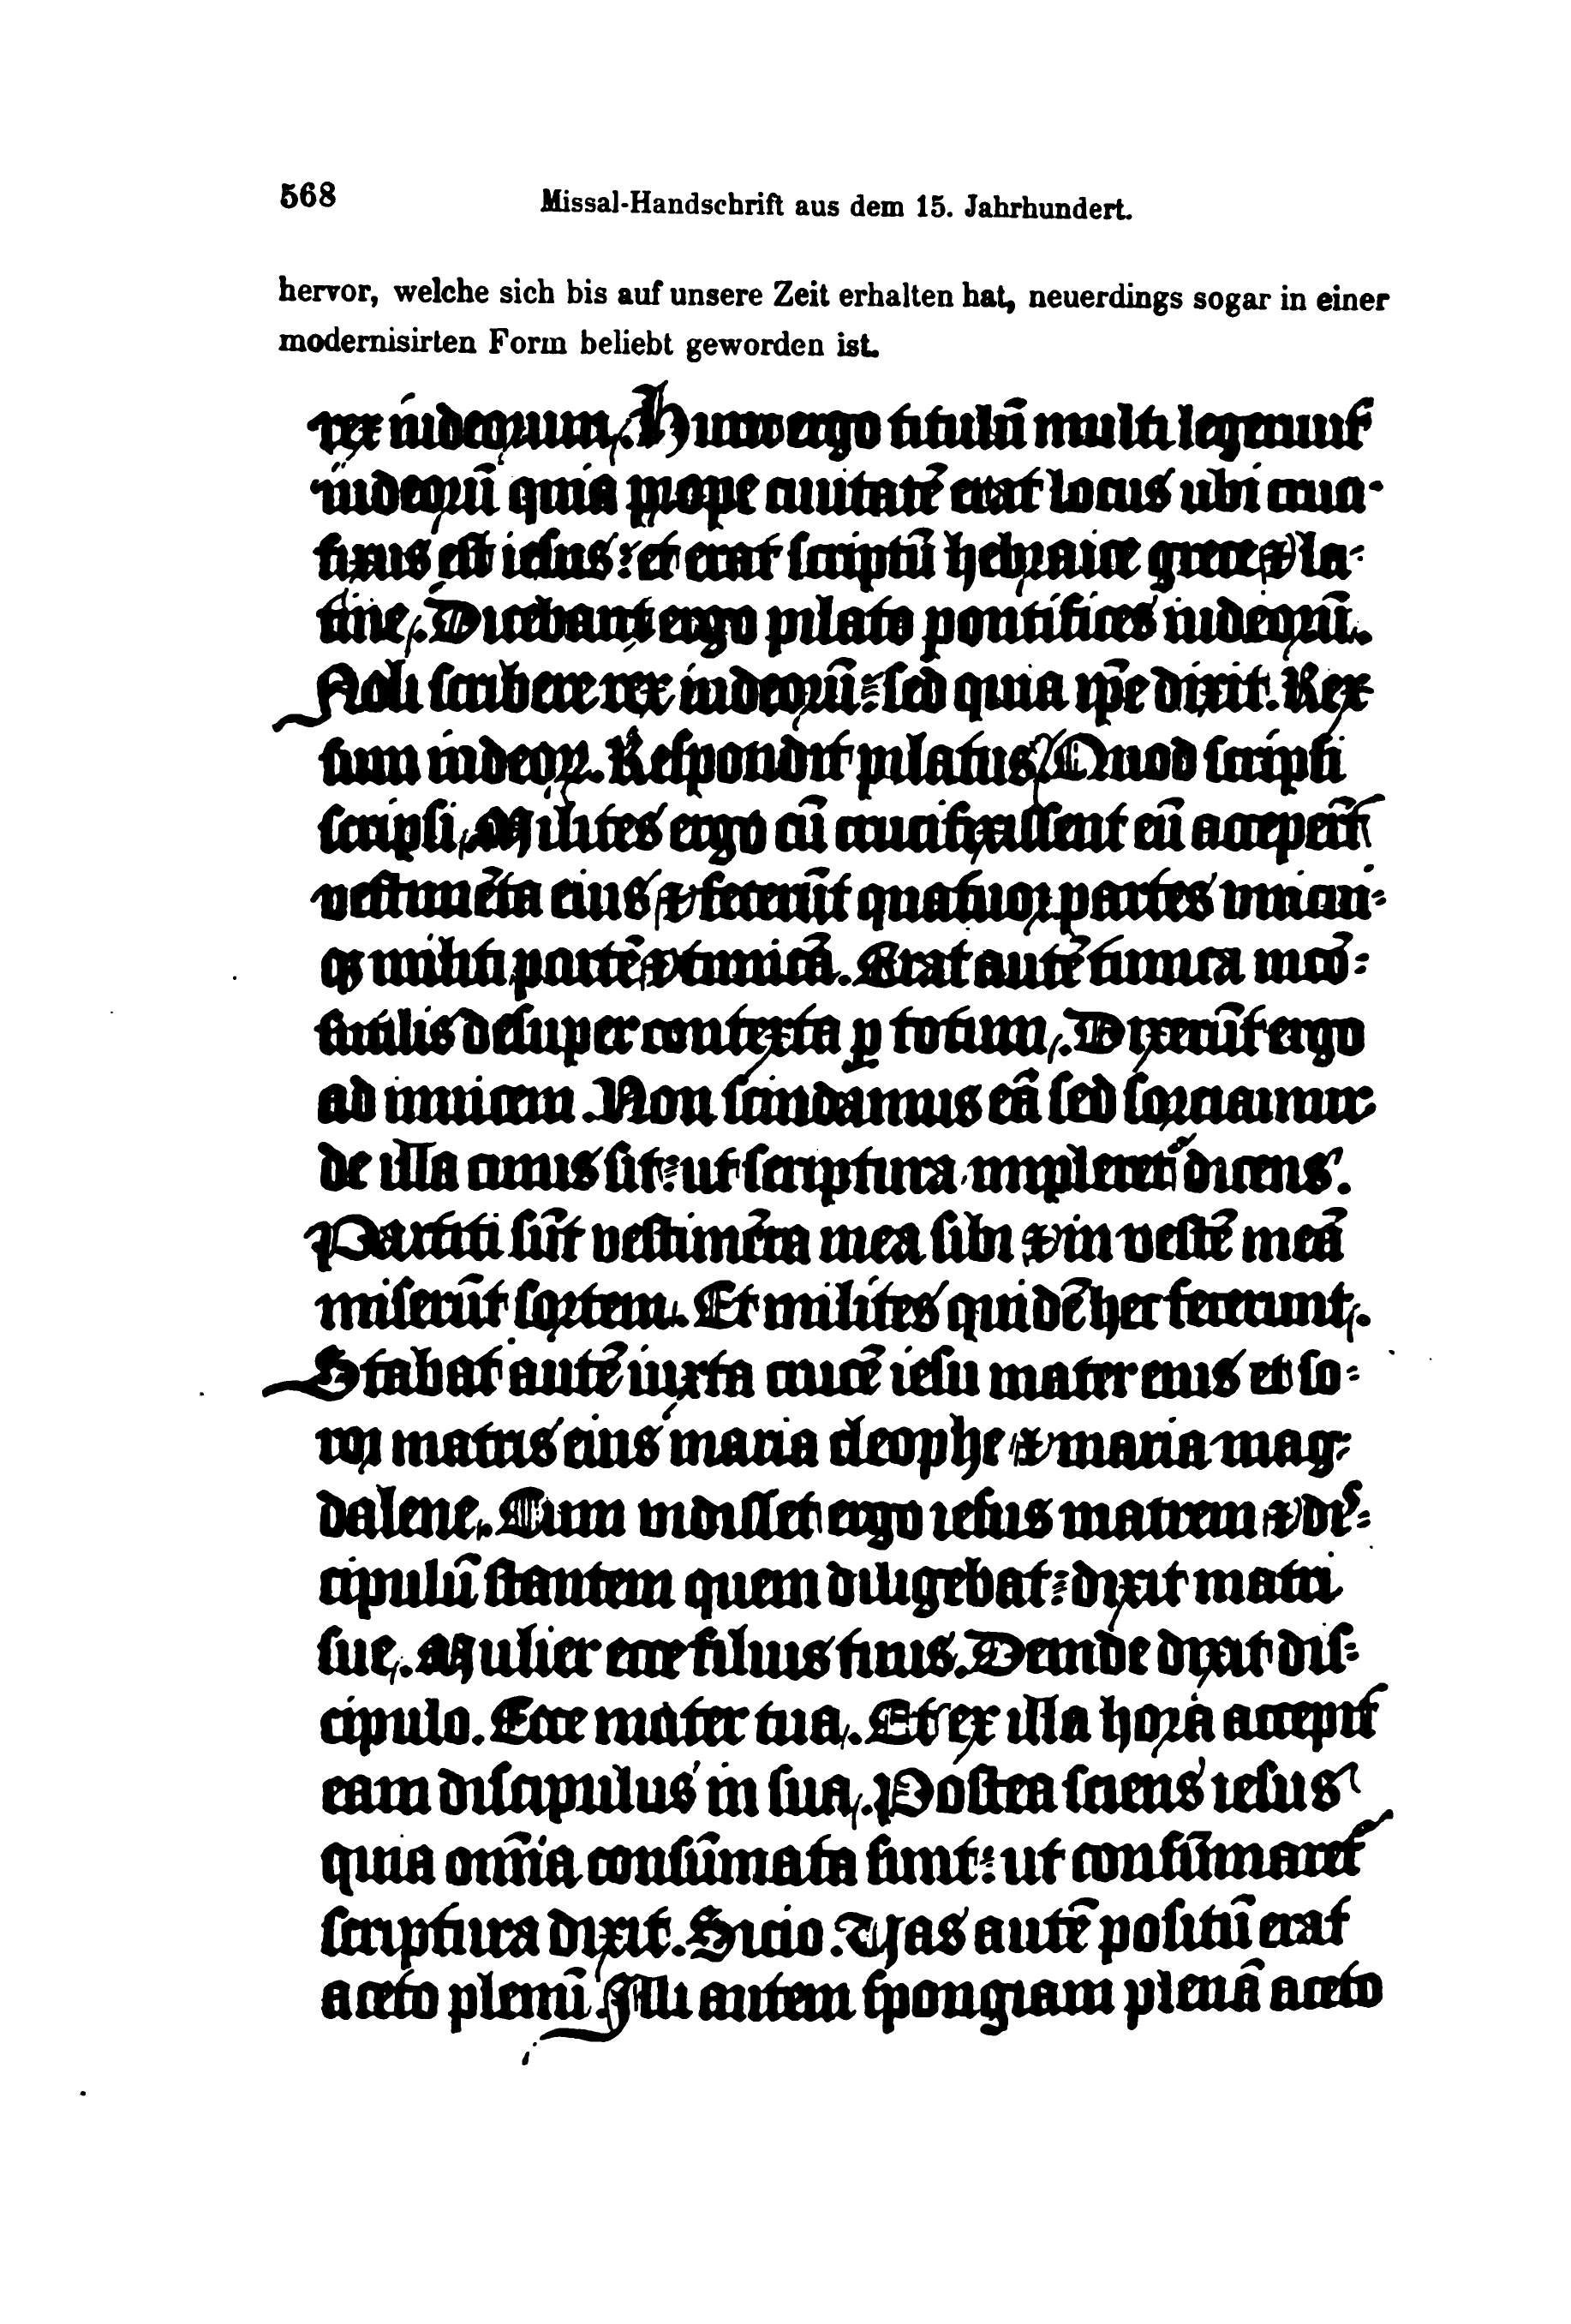 568
Missal-Handschrift aus dem 15. Jahrhundert.
hervor, welche sich bis auf unsere Zeit erhalten hat, neuerdings sogar in einer
modernisirten Form beliebt geworden ist.
rex iudeorum. Hunc ergo titulū multi legerunt
iudeorū quia prope ciuitatē erat locus ubi cruci-
fixus est iesus: et erat scriptū hebraice grece & la-
tine. Dicebant ergo pilato pontifices iudeorū.
Noli scribere rex iudeorū: sed quia ip̄e dixit. Rex
sum iudeoꝝ. Respondit pilatus Quod scripsi
scripsi. Milites ergo cū crucifixissent eū acceper̄t
vestimēta eius & fecerūt quatuor partes vnicui-
qꝫ militi partē & tunicā. Erat autē tunica incō-
sutilis desuper contexta ꝑ totum. Dixerūt ergo
ad inuicem. Non scindamus eā sed sorciamur
de illa cuius sit: ut scriptura impleret᷑ dicens.
Partiti sūt vestimēta mea sibi & in vestē meā
miserūt sortem. Et milites quidē hec fecerunt.
Stabat autē iuxta crucē iesu mater eius et so-
ror matris eius maria cleophe & maria mag-
dalene. Cum vidisset ergo iesus matrem & di-
cipulū stantem quem diligebat: dixit matri
sue. Mulier ecce filius tuus. Deinde dixit dis-
cipulo. Ecce mater tua. Et ex illa hora accepit
eam discipulus in sua. Postea sciens iesus
quia om̄ia consūmata sunt: ut consūmaret᷑
scriptura dixit. Sicio. Vas autē positū erat
aceto plenū. Illi autem spongiam plenā aceto